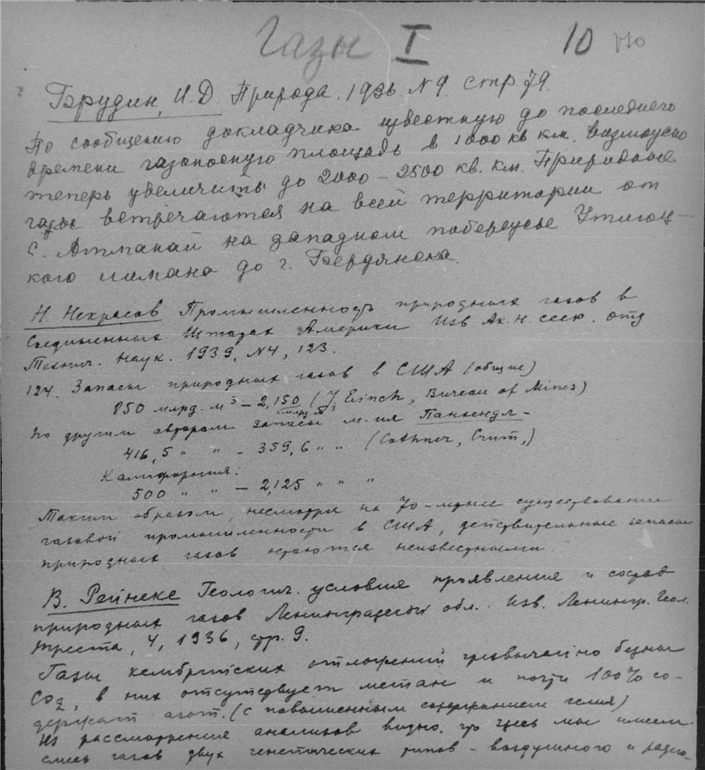 Газы I 10
Брудин, И.Д. Природа, 1936 N 9. стр. 79.
По сообщению докладчика известную до последнего
времени газоносную площадь в 1000 кв км. возможно
теперь увеличить до 2000 – 2500 кв. км. Природные
газы встречаются на всей территории от
с. Атманай на западном побережье Утлюц-
кого лимана до г. Бердянска.
Н. Некрасов Промышленность природных газов в
Соединенных Штатах Америки Изв Ак. Н СССР. отд
Технич. Наук. 1939, N4, 123.
124. Запасы природных газов в США (общие)
850 млрд. м³ – 2,150 (Bureau of Mines)
По другим авторам запасы м-ия Панхендл-
416,5 " " – 359,6 " " (
Калифорния:
500 " " – 2,125 " " "
Таким образом, несмотря на 70-летнее существование
газовой промышленности в США, действительные запасы
природных газов остаются неизвестными.
В. Рейнеке Геологич. условия проявления и состав
природных газов Ленинградской обл. Изв. Ленингр. Геол.
треста, 4, 1936, стр. 9.
Газы кембрийских отложений чрезвычайно бедны
CO₂, в них отсутствует метан и почти 100% со-
держат азот. (с повышенным содержанием гелия)
Из рассмотрения анализов видно, что здесь мы имеем
смесь газов двух генетических типов – воздушного и радио-